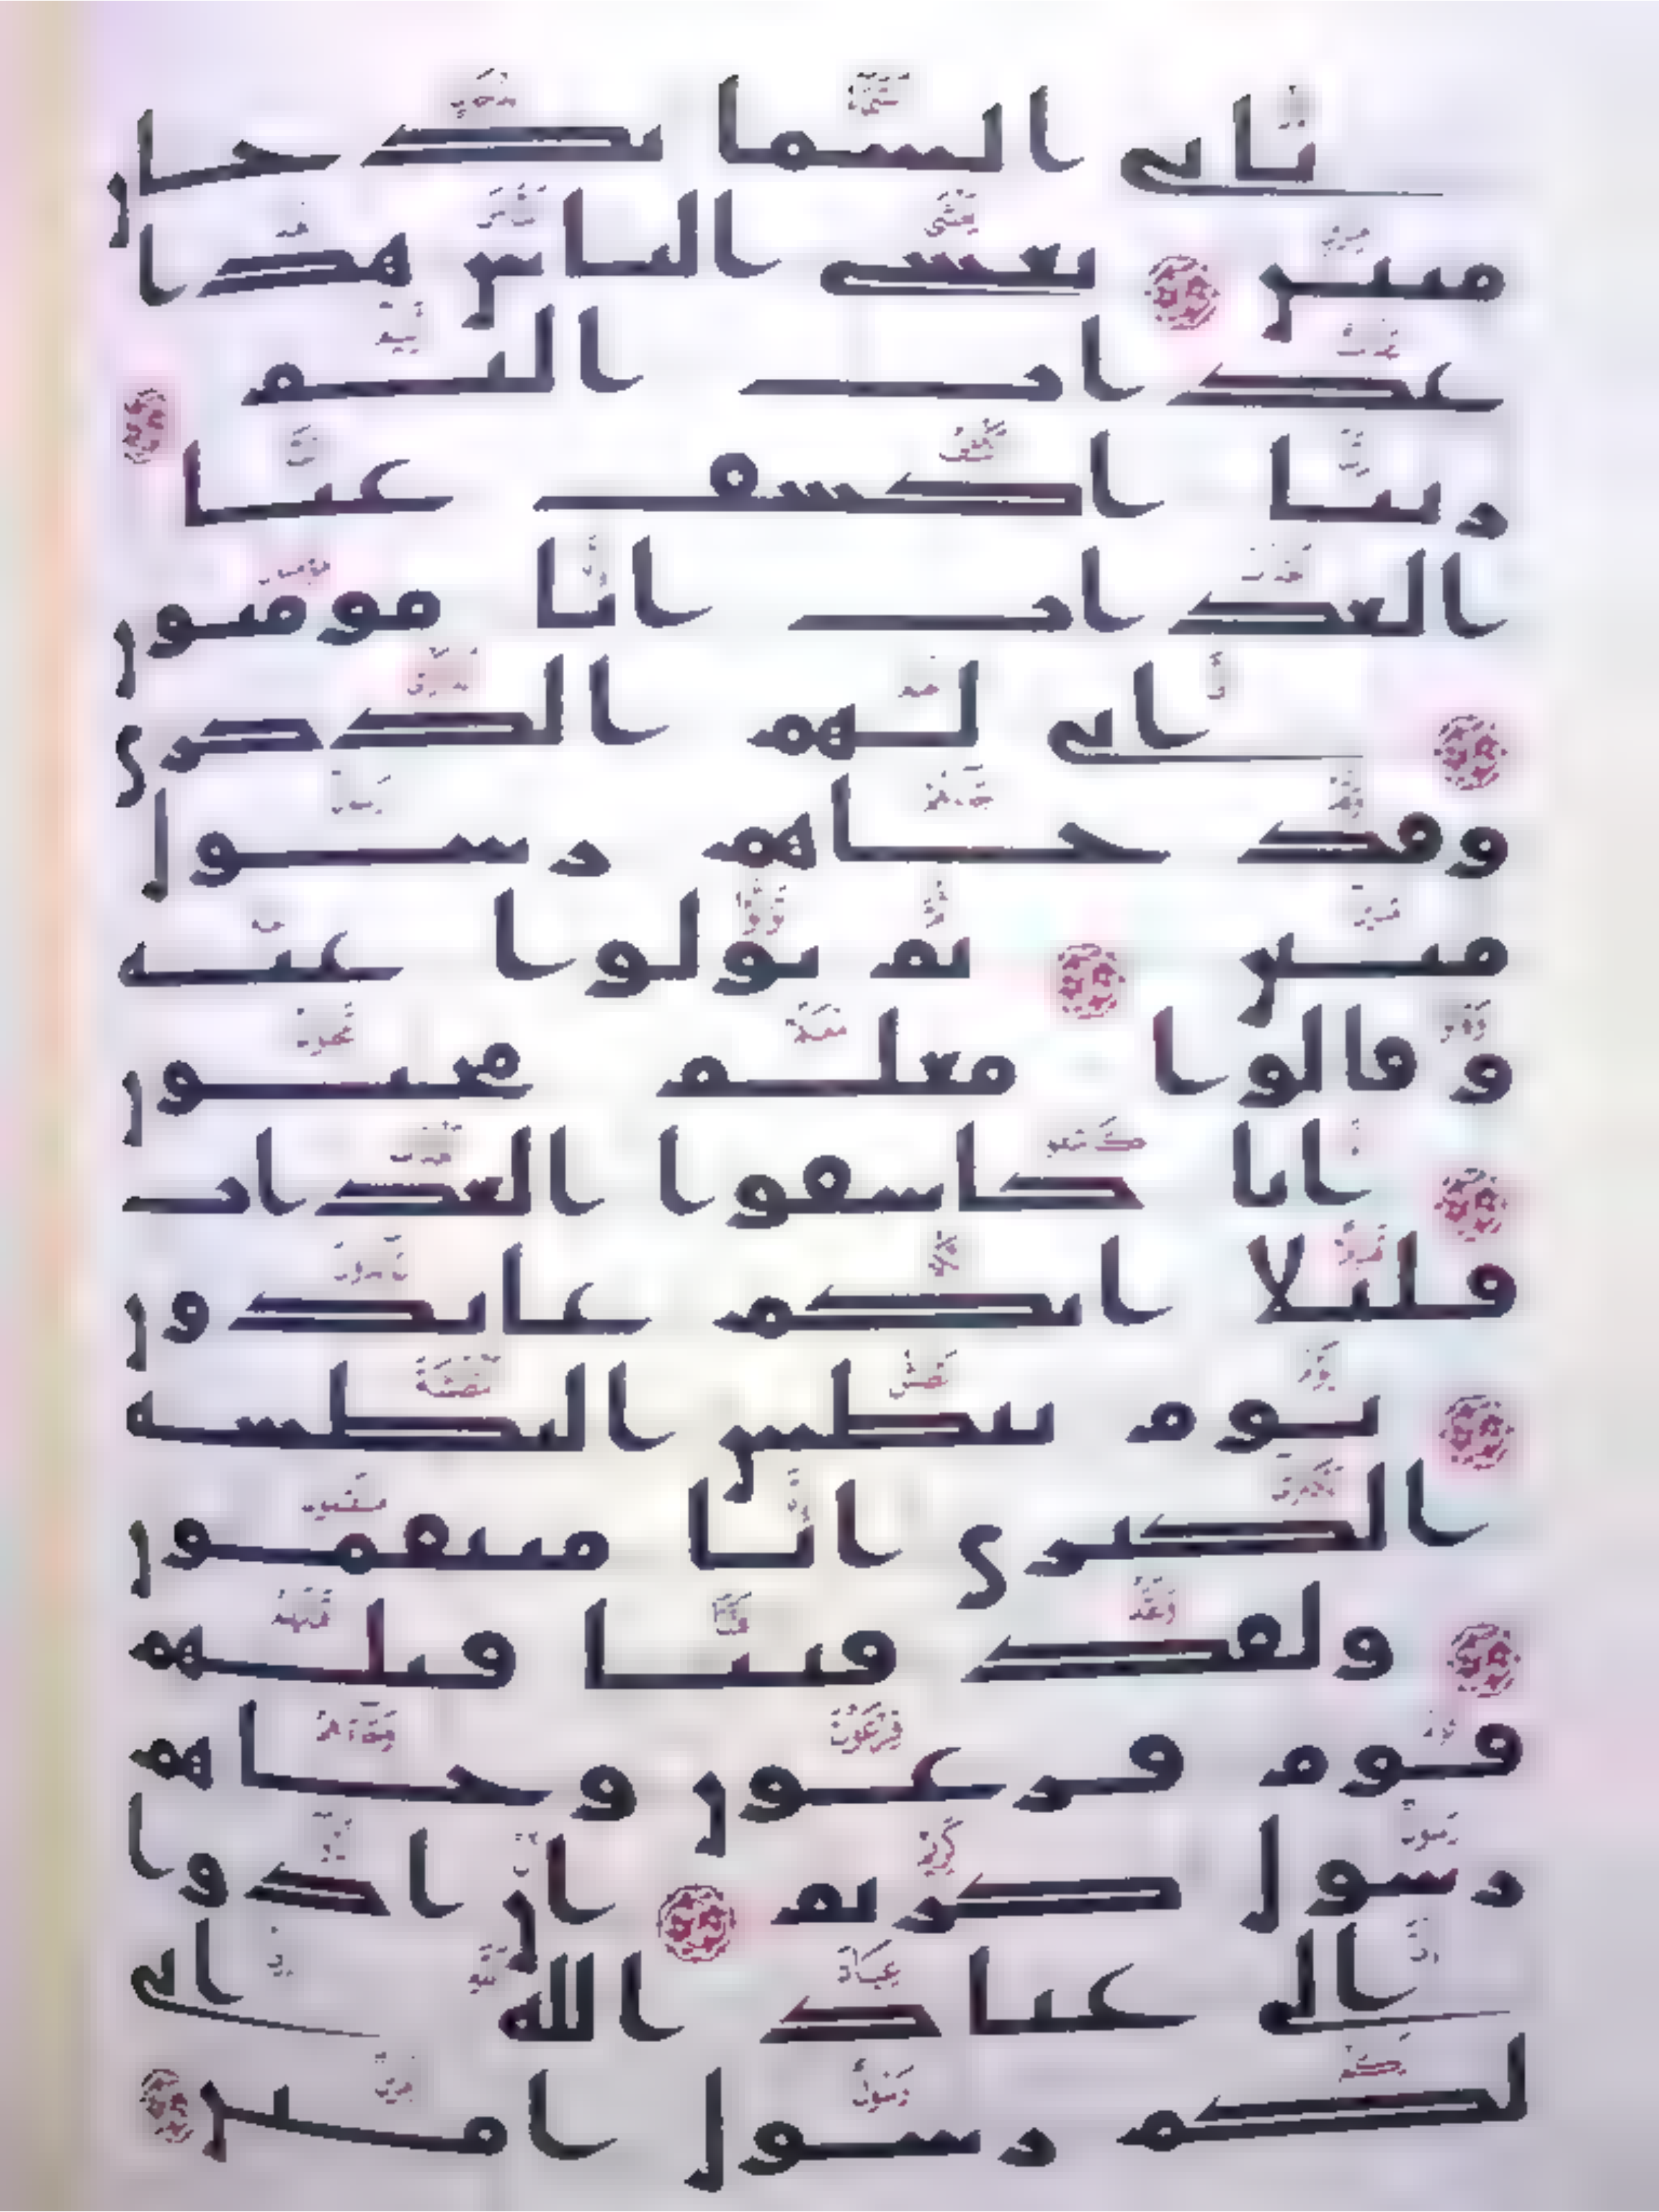 تاتى السما بدخان
مبين يغشى الناس هذا
عذاب اليم
ربنا اكشف عنا
العذاب انا مومنون
انى لهم الذكرى
وقد جاهم رسول
مبين ثم تولوا عنه
وقالوا معلم مجنون
انا كاشفوا العذاب
قليلا انكم عايدون
يوم نبطش البطشة
الكبرى انا منتقمون
ولقد فتنا قبلهم
قوم فرعون وجاهم
رسول كريم ان ادوا
الى عباد الله انى
لكم رسول امين